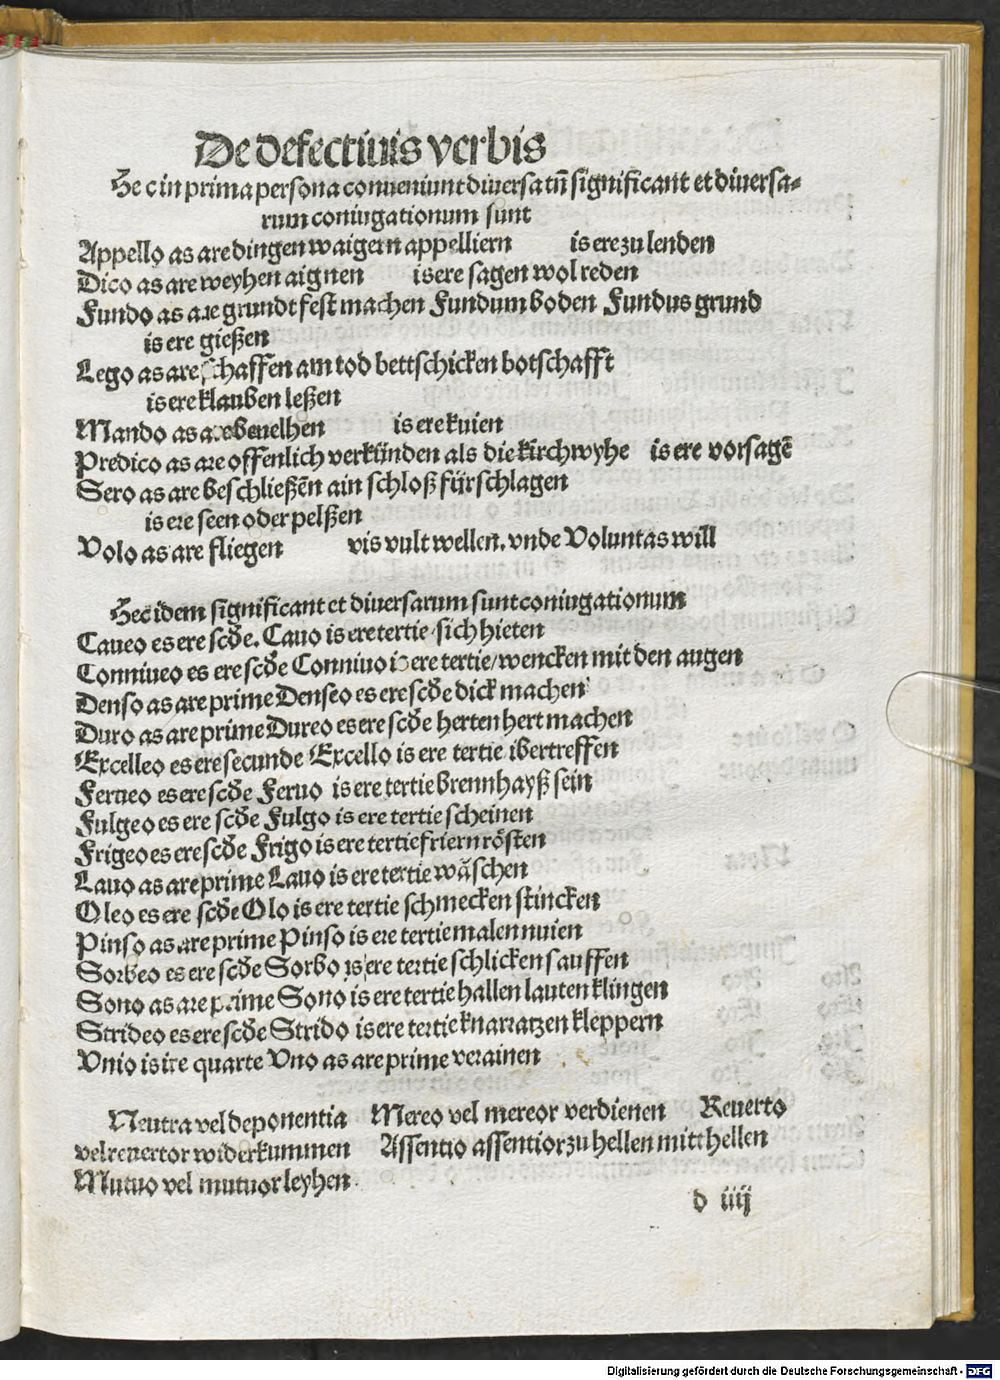 De defectiuis verbis
Hec in prima persona conueniunt diuersa tñ significant et diuersa-
rum coniugationum sunt
Appello as are dingen waigern appelliern is ere zu lenden
Dico as are weyhen aignen is ere sagen wol reden
Fundo as are grundt fest machen Fundum boden Fundus grund
is ere gießen
Lego as are schaffen am tod bettschicken botschafft
is ere klauben leßen
Mando as are beuelhen is ere kuien
Predico as are offenlich verkünden als die kirchwyhe is ere vorsagē
Sero as are beschließen ain schloß fürschlagen
is ere seen oder pelßen
Volo as are fliegen vis vult wellen. vnde Voluntas will
Hec idem significant et diuersarum sunt coniugationum
Caueo es ere scđe. Cauo is ere tertie sich hieten
Conniueo es ere scđe Conniuo is ere tertie/ wencken mit den augen
Denso as are prime Denseo es ere scđe dick machen
Duro as are prime Dureo es ere scđe herten hert machen
Excelleo es ere secunde Excello is ere tertie ibertreffen
Ferueo es ere scđe Feruo is ere tertie brennhayß sein
Fulgeo es ere scđe Fulgo is ere tertie scheinen
Frigeo es ere scđe Frigo is ere tertie friern rösten
Lauo as are prime Lauo is ere tertie wäschen
Oleo es ere scđe Olo is ere tertie schmecken stincken
Pinso as are prime Pinso is ere tertie malen nuien
Sorbeo es ere scđe Sorbo is ere tertie schlicken sauffen
Sono as are prime Sono is ere tertie hallen lauten klingen
Strideo es ere scđe Strido is ere tertie knarratzen kleppern
Vnio is ire quarte Vno as are prime verainen
Neutra vel deponentia Mereo vel mereor verdienen Reuerto
vel reuertor widerkummen Assentio assentior zu hellen mitthellen
Mutuo vel mutuor leyhen
d iiij
Digitalisierung gefördert durch die Deutsche Forschungsgemeinschaft - DFG